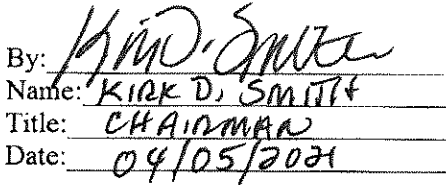 By: Kirk D. Smith
Name: KIRK D. SMITH
Title: CHAIRMAN
Date: 04/05/2021